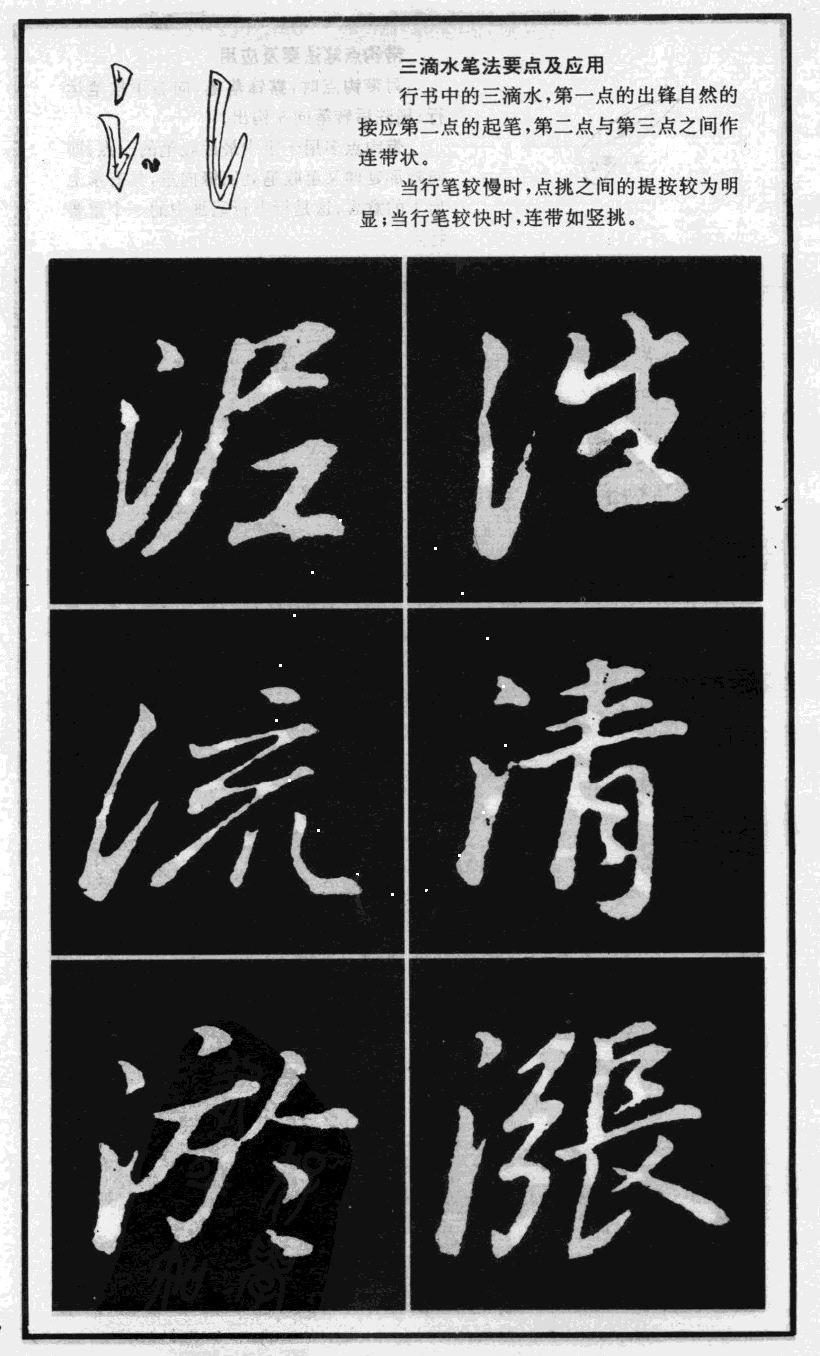 三滴水笔法要点及应用
行书中的三滴水，第一点的出锋自然的
接应第二点的起笔，第二点与第三点之间作
连带状。
当行笔较慢时，点挑之间的提按较为明
显；当行笔较快时，连带如竖挑。
泥
流 清
淤 漲